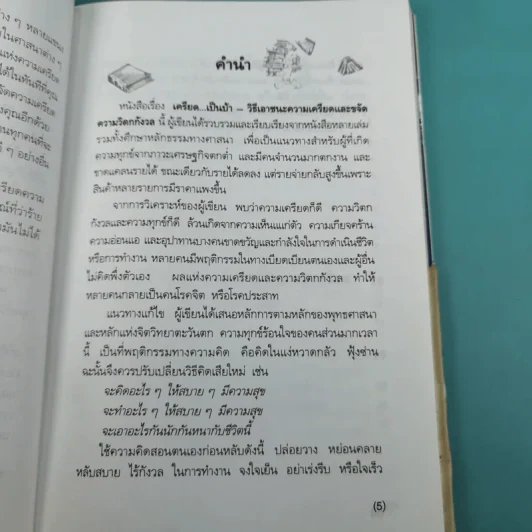 ง ๆ หลายแขนง
ในศาสนาต่าง ๆ
แห่งความเครียด
ได้ในทันทีที่คุณ
จัดความเครียด
งคุณอีกด้วย
นทุกคนที่จะ
ดี ๆ อย่างอื่น
ครียดความ
ณ์ที่ว่าร้าย
งมันไม่ได้
คำนำ
หนังสือเรื่อง เครียด...เป็นบ้า – วิธีเอาชนะความเครียดและขจัด
ความวิตกกังวล นี้ ผู้เขียนได้รวบรวมและเรียบเรียงจากหนังสือหลายเล่ม
รวมทั้งศึกษาหลักธรรมทางศาสนา เพื่อเป็นแนวทางสำหรับผู้ที่เกิด
ความทุกข์จากภาวะเศรษฐกิจตกต่ำ และมีคนจำนวนมากตกงาน และ
ขาดแคลนรายได้ ขณะเดียวกับรายได้ลดลง แต่รายจ่ายกลับสูงขึ้นเพราะ
สินค้าหลายรายการมีราคาแพงขึ้น
จากการวิเคราะห์ของผู้เขียน พบว่าความเครียดก็ดี ความวิตก
กังวลและความทุกข์ก็ดี ล้วนเกิดจากความเห็นแก่ตัว ความเกียจคร้าน
ความอ่อนแอ และอุปาทานบางคนขาดขวัญและกำลังใจในการดำเนินชีวิต
หรือการทำงาน หลายคนมีพฤติกรรมในทางเบียดเบียนตนเองและผู้อื่น
ไม่คิดพึ่งตัวเอง ผลแห่งความเครียดและความวิตกกังวล ทำให้
หลายคนกลายเป็นคนโรคจิต หรือโรคประสาท
แนวทางแก้ไข ผู้เขียนได้เสนอหลักการตามหลักของพุทธศาสนา
และหลักแห่งจิตวิทยาตะวันตก ความทุกข์ร้อนใจของคนส่วนมากเวลา
นี้ เป็นที่พฤติกรรมทางความคิด คือคิดในแง่หวาดกลัว ฟุ้งซ่าน
ฉะนั้นจึงควรปรับเปลี่ยนวิธีคิดเสียใหม่ เช่น
จะคิดอะไร ๆ ให้สบาย ๆ มีความสุข
จะทำอะไร ๆ ให้สบาย ๆ มีความสุข
จะเอาอะไรกันนักกันหนากับชีวิตนี้
ใช้ความคิดสอนตนเองก่อนหลับดังนี้ ปล่อยวาง หย่อนคลาย
หลับสบาย ไร้กังวล ในการทำงาน จงใจเย็น อย่าเร่งรีบ หรือใจเร็ว
(5)